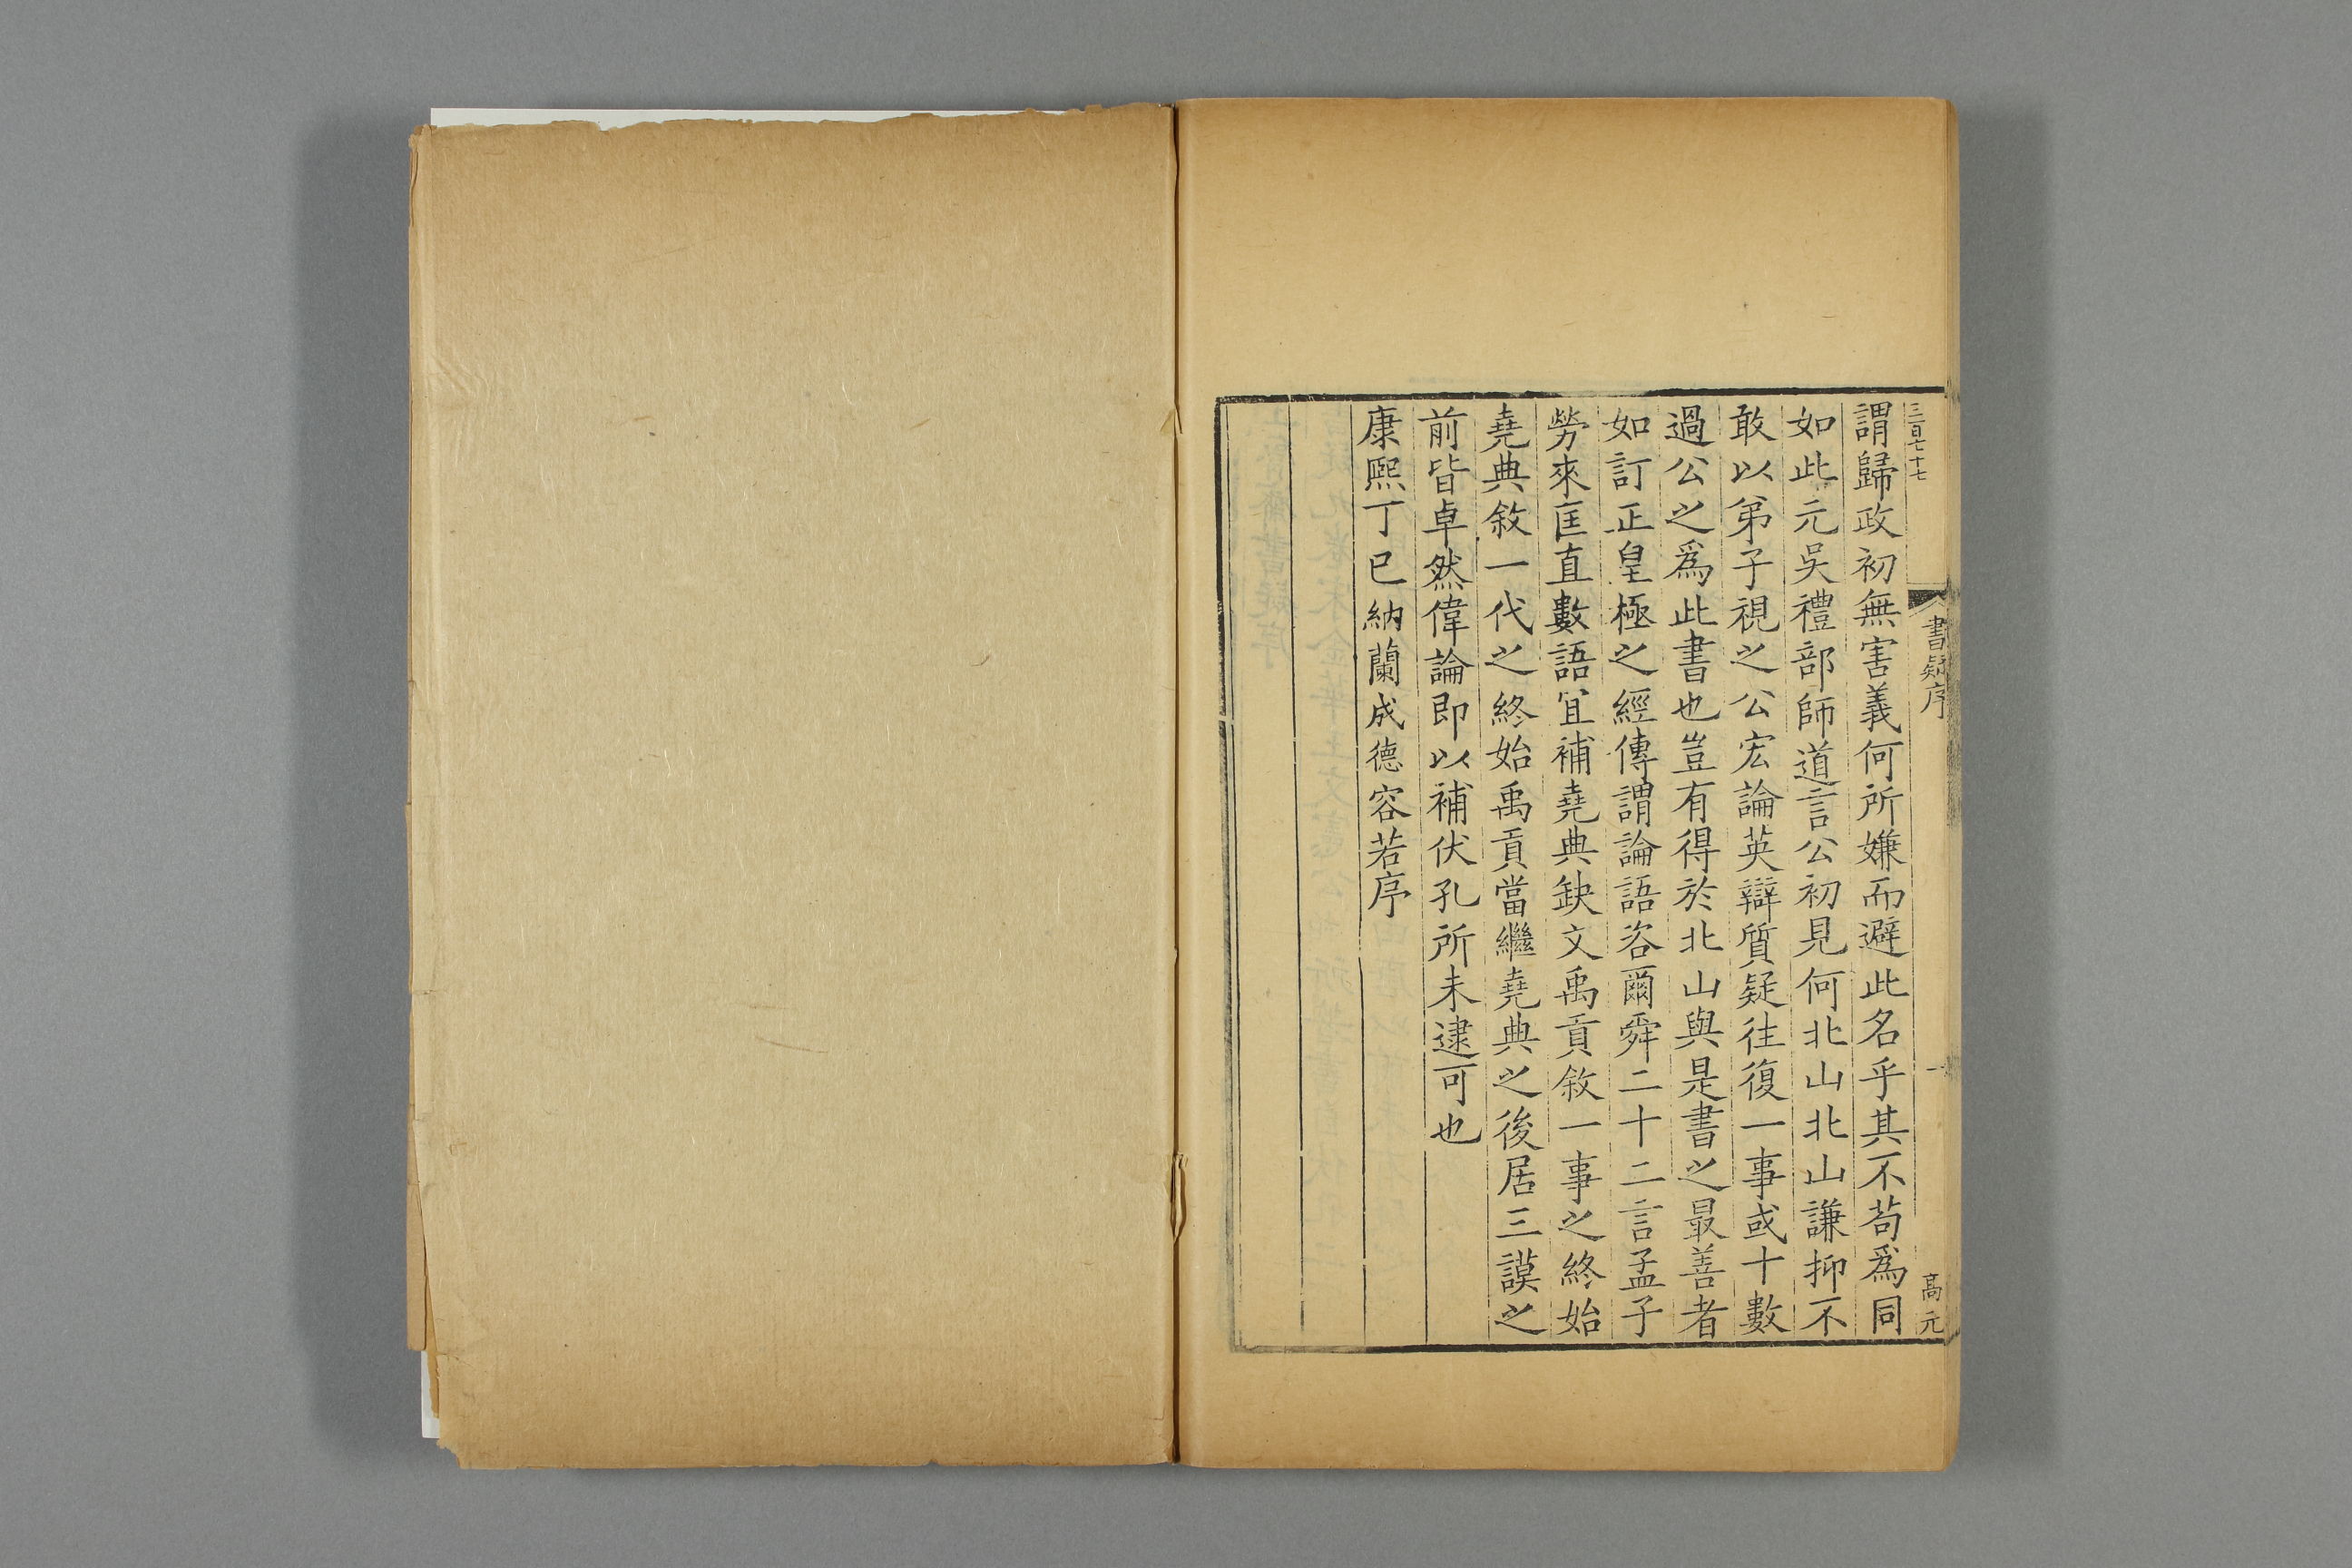 三百七十七
書疑序
一
高元
謂歸政初無害義何所嫌而避此名乎其不苟爲同
如此元吳禮部師道言公初見何北山北山謙抑不
敢以弟子視之公宏論英辯質疑往復一事或十數
過公之爲此書也豈有得於北山與是書之最善者
如訂正皇極之經傳謂論語咨爾舜二十二言孟子
勞來匡直數語宜補堯典缺文禹貢敘一事之終始
堯典敘一代之終始禹貢當繼堯典之後居三謨之
前皆卓然偉論即以補伏孔所未逮可也
康熙丁巳納蘭成德容若序